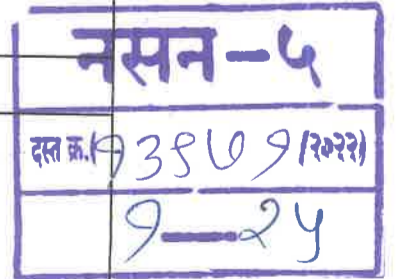 नसन-५
दस्त क्र.(१३९७१/२०२२)
१—२५